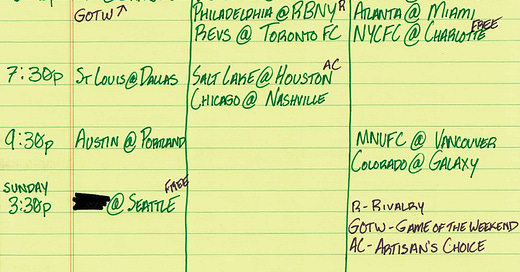 GOTW ↗
PHILADELPHIA @ RBNY R
ATLANTA @ MIAMI
REVS @ TORONTO FC
NYCFC @ CHARLOTTE FREE
7:30p
ST LOUIS @ DALLAS
SALT LAKE @ HOUSTON AC
CHICAGO @ NASHVILLE
9:30p
AUSTIN @ PORTLAND
MNUFC @ VANCOUVER
COLORADO @ GALAXY
SUNDAY
3:30p
@ SEATTLE FREE
R-RIVALRY
GOTW-GAME OF THE WEEKEND
AC-ARTISAN'S CHOICE